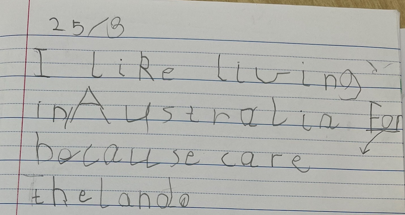 25/8
I Like living
in Australia For
because care
the lando